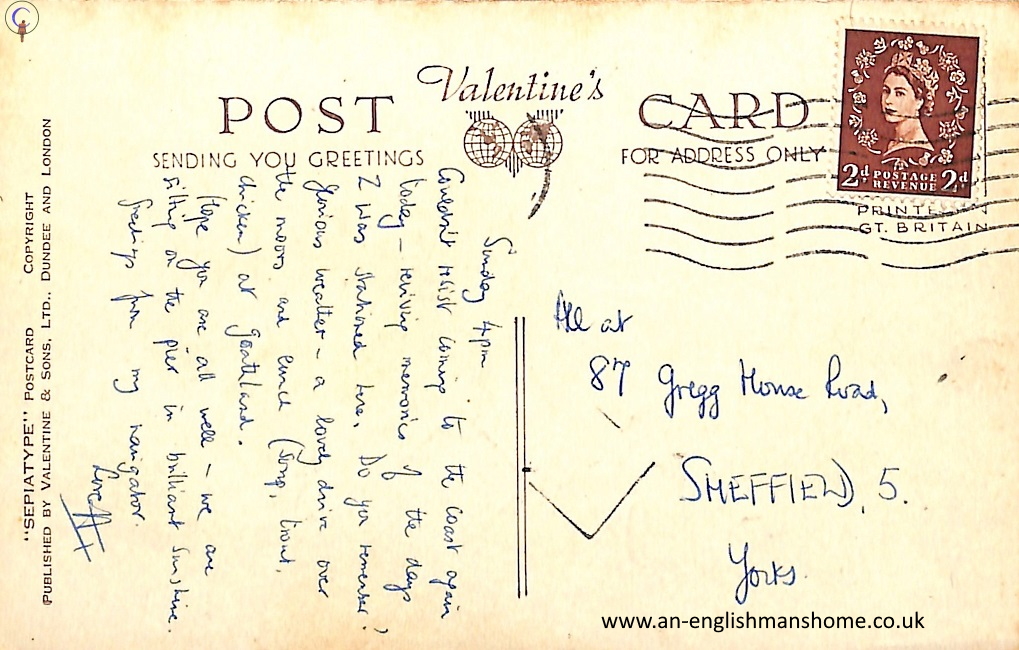 Valentine's
POST CARD
SENDING YOU GREETINGS
FOR ADDRESS ONLY
2d POSTAGE REVENUE 2d
PRINTED IN
GT. BRITAIN
Sunday 4pm
Couldn't resist coming to the coast again
today – reviving memories of the days
I was stationed here. Do you remember?
Glorious weather – a lovely drive over
the moors and lunch (Soup, trout,
chicken) at Goathland.
Hope you are all well – we are
sitting on the pier in brilliant sunshine.
Greetings from my navigator.
Love
All at
87 Gregg House Road,
SHEFFIELD, 5.
Yorks
"SEPIATYPE" POSTCARD COPYRIGHT
PUBLISHED BY VALENTINE & SONS, LTD., DUNDEE AND LONDON
www.an-englishmanshome.co.uk